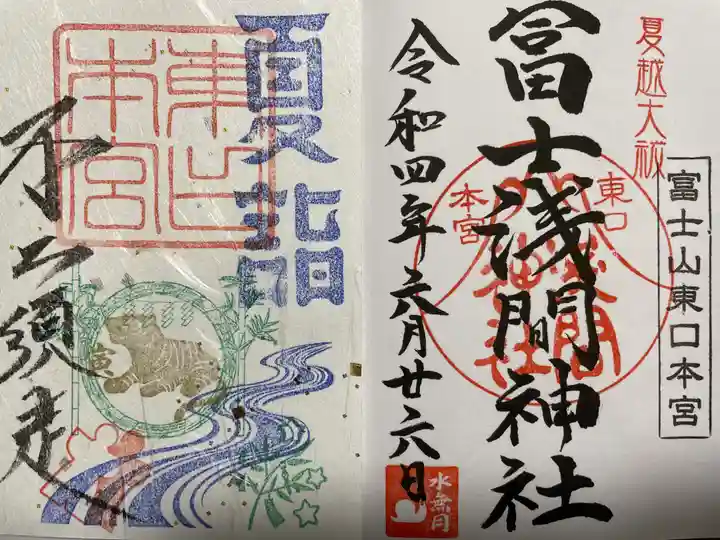 夏越大祓
富士山東口本宮
冨士浅間神社
東口
本宮
浅間
神社
令和四年六月廿六日
水無月
夏詣
東口
本宮
寅
不二須走